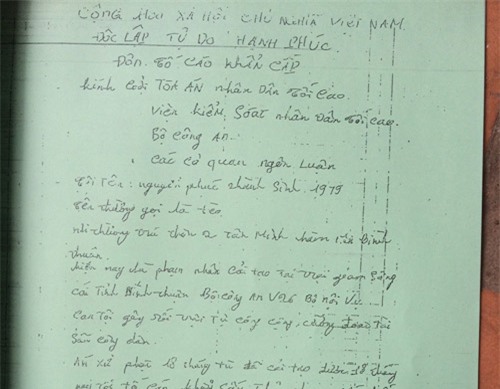 CỘNG HÒA XÃ HỘI CHỦ NGHĨA VIỆT NAM
ĐỘC LẬP TỰ DO HẠNH PHÚC
ĐƠN TỐ CÁO KHẨN CẤP
kính Gởi TÒA ÁN nhân Dân Tối Cao
Viện kiểm Soát nhân Dân Tối Cao
Bộ Công An
Các cơ quan ngôn Luận
Tôi Tên: nguyễn phúc thành Sinh 1979
Tên thường gọi là tèo
nơi thường trú thôn 2 Tân Minh hàm Bình
thuận
hiện nay là phạm nhân Cải tạo Tại trại giam Sông
cái Tỉnh Bình thuận Bộ công An V26 Bộ nội Vụ
Can Tội gây rối trật Tự công cộng, Tài
Sản công dân
Án xử phạt tháng tù đã cải tạo được 18 tháng
nay Tôi tố cáo khẩn cấp